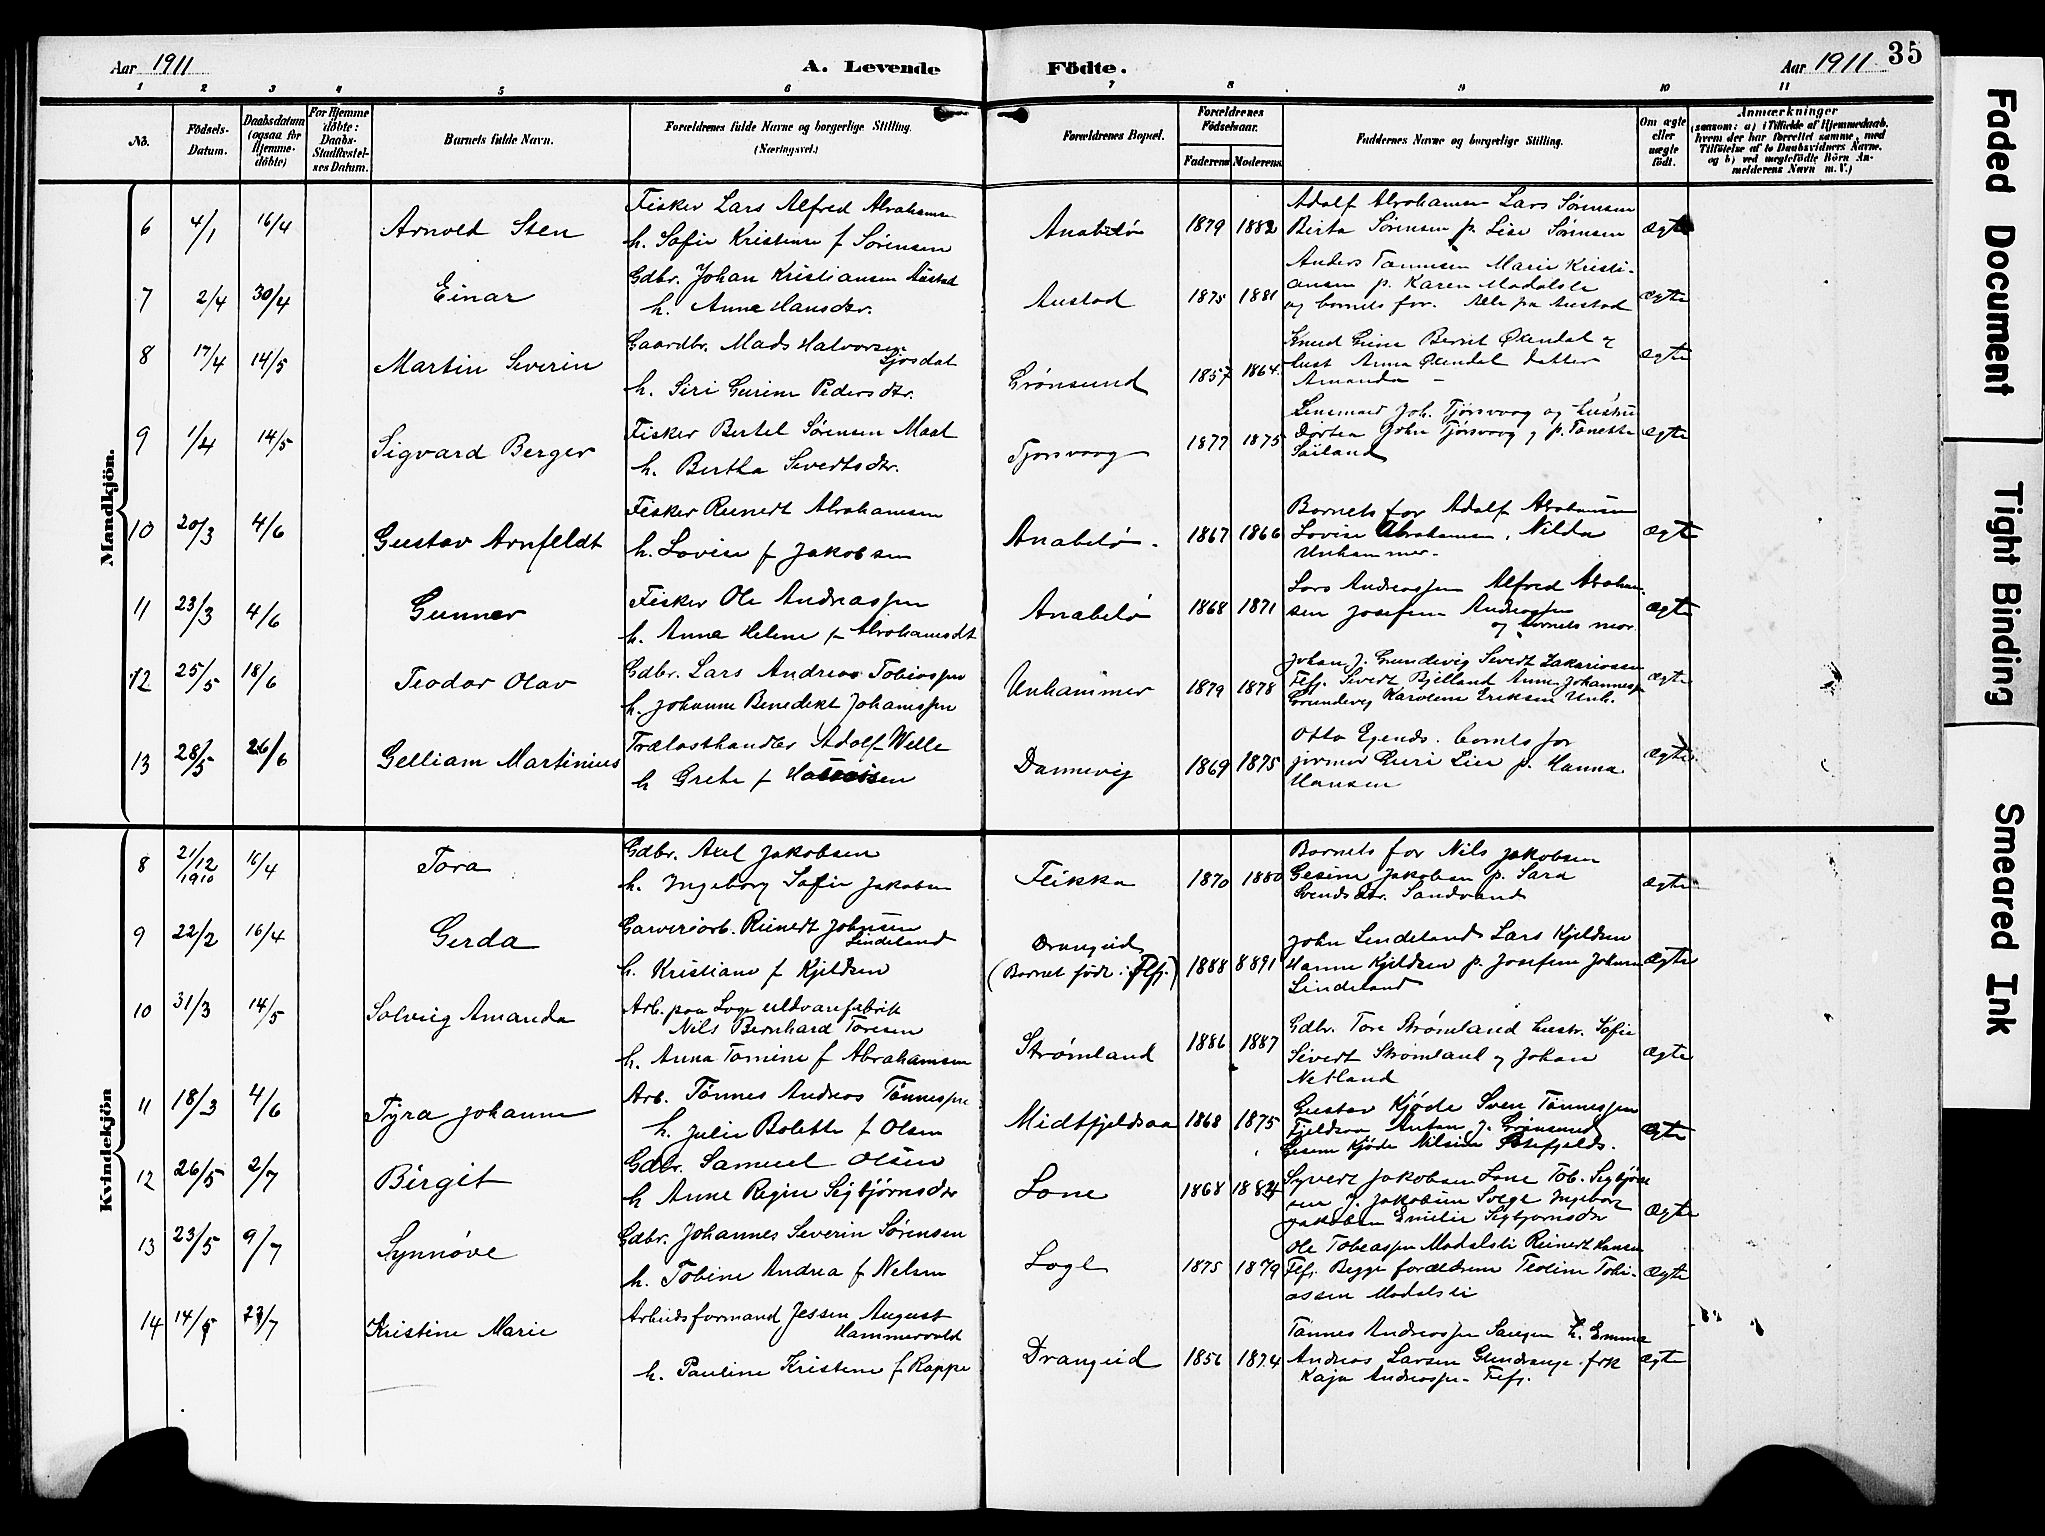 Aar 1911
A. Levende
Födte.
Aar 1911
35
1 2 3 4 5 6 7 8 9 10 11
No.
Födsels-Datum.
Daabsdatum (ogsaa for Hjemme-döbte)
For Hjemme döbte: Daabs-Stadfæstel-ses Datum.
Barnets fulde Navn.
Forældrenes fulde Navne og borgerlige Stilling.
(Næringsvei.)
Forældrenes Bopæl.
Forældrenes Födselsaar.
Faderens Moderens
Faddernes Navne og borgerlige Stilling.
Om ægte eller uægte födt.
Anmærkninger
(saasom: a) i Tilfælde af Hjemmedaab, hvem der har forrettet samme, med Tilföielse af to Daabsvidners Navne, og b) ved uægtefödte Börn An-melderens Navn m. V.)
Mandkjön.
6 4/1 16/4 Arnold Sten
Fisker Lars Alfred Abrahamsen
h. Sofie Kristine f Sørensen
Anabelø 1879 1882
Adolf Abrahamsen Lars Sørensen
Berta Sørensen p. Lise Sørensen
ægte
7 2/4 30/4 Einar
Gdbr. Johan Kristiansen Austad
h. Anne Hansdtr.
Austad 1875 1881
Anders Tønnesen Marie Kristi-
ansen p. Karen Madalsli
og barnets far. Alle paa Austad
ægte
8 17/4 14/5 Martin Severin
Gaardbr. Mads Halvorsen
Ljosdal
h. Siri Gurine Pedersdtr.
Grønsund 1857 1864
Knud Bernt Øxendal
hust Anna Øxendal datter
Amanda
ægte
9 1/4 14/5 Sigvard Berger
Fisker Bertel Sørensen
h. Bertha Severtsdtr.
Tjørsvaag 1877 1875
Lensmand Joh. Tjørsvaag og hustru
Dortea John Tjørsvaag p. Tanette
ægte
10 20/3 4/6 Gustav Arnfeldt
Fisker Reinert Abrahamsen
h. Lovise f Jakobsen
Anabelø. 1867 1866
Barnets far Adolf Abrahamsen
Lovise Abrahamsen, Nilda
Unhammer.
ægte
11 23/3 4/6 Gunner
Fisker Ole Andreassen
h. Anne Helene f Abrahamsdt
Anabelø 1868 1871
Lars Andreassen Alfred Abraham-
sen Josefine Andreassen
og barnets mor.
ægte
12 25/5 18/6 Teodor Olav
Gdbr. Lars Andreas Tobiassen
h. Johanne Benedikt Johannessen
Unhammer 1879 1878
Johan J. Grundevig Severt Zakariassen
Flfj. Sivert Bjelland Anne Johannessen
Grundevig Karoline Eriksen Unh.
ægte
13 28/5 26/6 Gelliam Martinius
Trælasthandler Adolf Welle
h Grete f
Dannevig 1869 1875
Otto Egends. barnets far
jormor Guri Lie p. Hanna
Hansen
ægte
Kvindekjön
8 21/12 1910 16/4 Tora
Gdbr. Axel Jakobsen
h. Ingeborg Sofie Jakobsen
Fleikka 1870 1880
Barnets far Nils Jakobsen
Gesine Jakobsen p. Sara
Svendsdtr. Sandvand
ægte
9 22/2 16/4 Gerda
Garveriarb. Reinert Johnsen
Lindeland
h. Kristiane f Kjeldsen
Drangeid
(Barnet født i Flfj.) 1888 8891
John Lindeland Lars Kjeldsen
Hanne Kjeldsen p. Josefine Johnsen
Lindeland
ægte
10 31/3 14/5 Solveig Amanda
Arb. paa Loge uldvarefabrik
Nils Bernhard Toresen
h. Anna Tomine f Abrahamsen
Strømland 1886 1887
Gdbr. Tore Strømland hustr. Sofie
Sivert Strømland og Johan
Netland
ægte
11 18/3 4/6 Tyra Johanne
Arb. Tönnes Andreas Tönnessen
h. Julie Bolette f Olsen
Midtfjeldsaa 1868 1875
Gustav Kjöde Sven Tönnessen
Fjeldsaa Anton J. Grønsund
Gesine Kjøde Nilsine
ægte
12 26/5 2/7 Birgit
Gdbr. Samuel Olsen
h Anne Regine Sigbjørnsdtr
Lone 1868 1884
Syvert Jakobsen Lone Tob. Sigbjørn
sen J. Jakobsen Svege Ingeborg
Jakobsen Emilie Sigbjørnsdtr
ægte
13 23/5 9/7 Synnöve
Gdbr. Johannes Severin Sørensen
h. Tobine Andrea f Nelsen
Loge 1875 1879
Ole Tobiassen Madalsli Reinert Hansen
Flfj. Begge forældrene Teoline Tobi-
assen Madalsli
ægte
14 14/5 23/7 Kristine Marie
Arbeidsformand Jessen August
Hammervold
h. Pauline Kristine f Rappe
Drangeid 1856 1874
Tønnes Andreassen h. Emma
Andreas Larsen frk
Kaja Andreassen Flfj.
ægte
Faded Document
Tight Binding
Smeared Ink